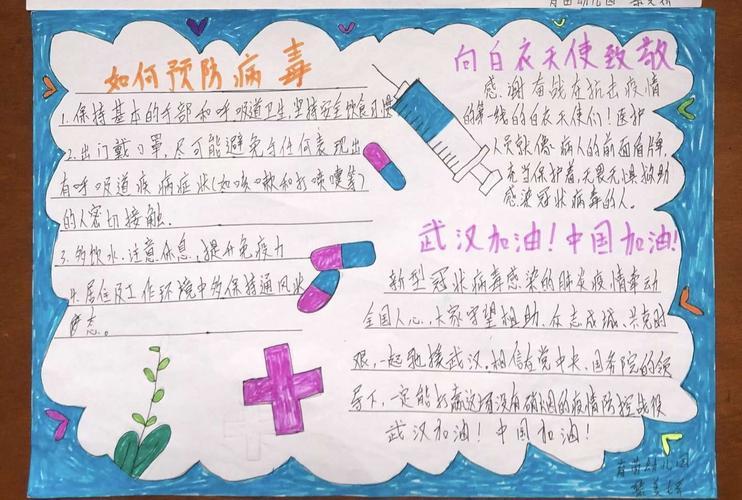 育苗幼儿园
如何预防病毒
1.保持基本的手部和呼吸道卫生,坚持安全饮食习惯
2.出门戴口罩,尽可能避免与任何表现出
有呼吸道疾病症状(如咳嗽和打喷嚏等)
的人密切接触.
3.多饮水.注意休息.提升免疫力
4.居住及工作环境中多保持通风状
态。
向白衣天使致敬
感谢奋战在抗击疫情
的第一线的白衣天使们!医护
人员就像病人的前面盾牌,
充当保护着,无畏无惧救助
感染冠状病毒的人。
武汉加油!中国加油!
新型冠状病毒感染的肺炎疫情牵动
全国人心,大家守望相助、众志成城、共克时
艰,一起驰援武汉.相信在党中央、国务院的领
导下,一定能打赢这场没有硝烟的疫情防控战役
武汉加油!中国加油!
育苗幼儿园